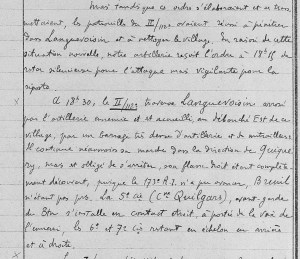 mais tandis que ce ordre s'élaboraient et se trans
mettaient, les patrouilles du II/ avaient réussi à pénétrer
dans Languevoisin et à attaquer le village. En raison de cette
situation nouvelle, notre artillerie reçoit l'ordre à 18h15 de
rester silencieuse pour l'attaque mais vigilante pour la
riposte.
A 18h30, le II/ traverse Languevoisin arrosé
par l'artillerie ennemie et est accueilli, en débouché Est de ce
village, par un barrage très dense d'artillerie et de mitrailleuses.
Il continue néanmoins sa marche dans la direction de Quiquery,
mais est obligé de s'arrêter, son flanc droit étant complète
découvert, puisque le 173e R.I. n'a pu avancer, Breuil
n'étant pas pris. La 5e Cie (Cne Quilgars), avant-garde
du Bon s'installe en contact étroit, à portée de la voie de
l'ennemi, les 6e et 7e Cies restant en échelon en arrière
et à droite.